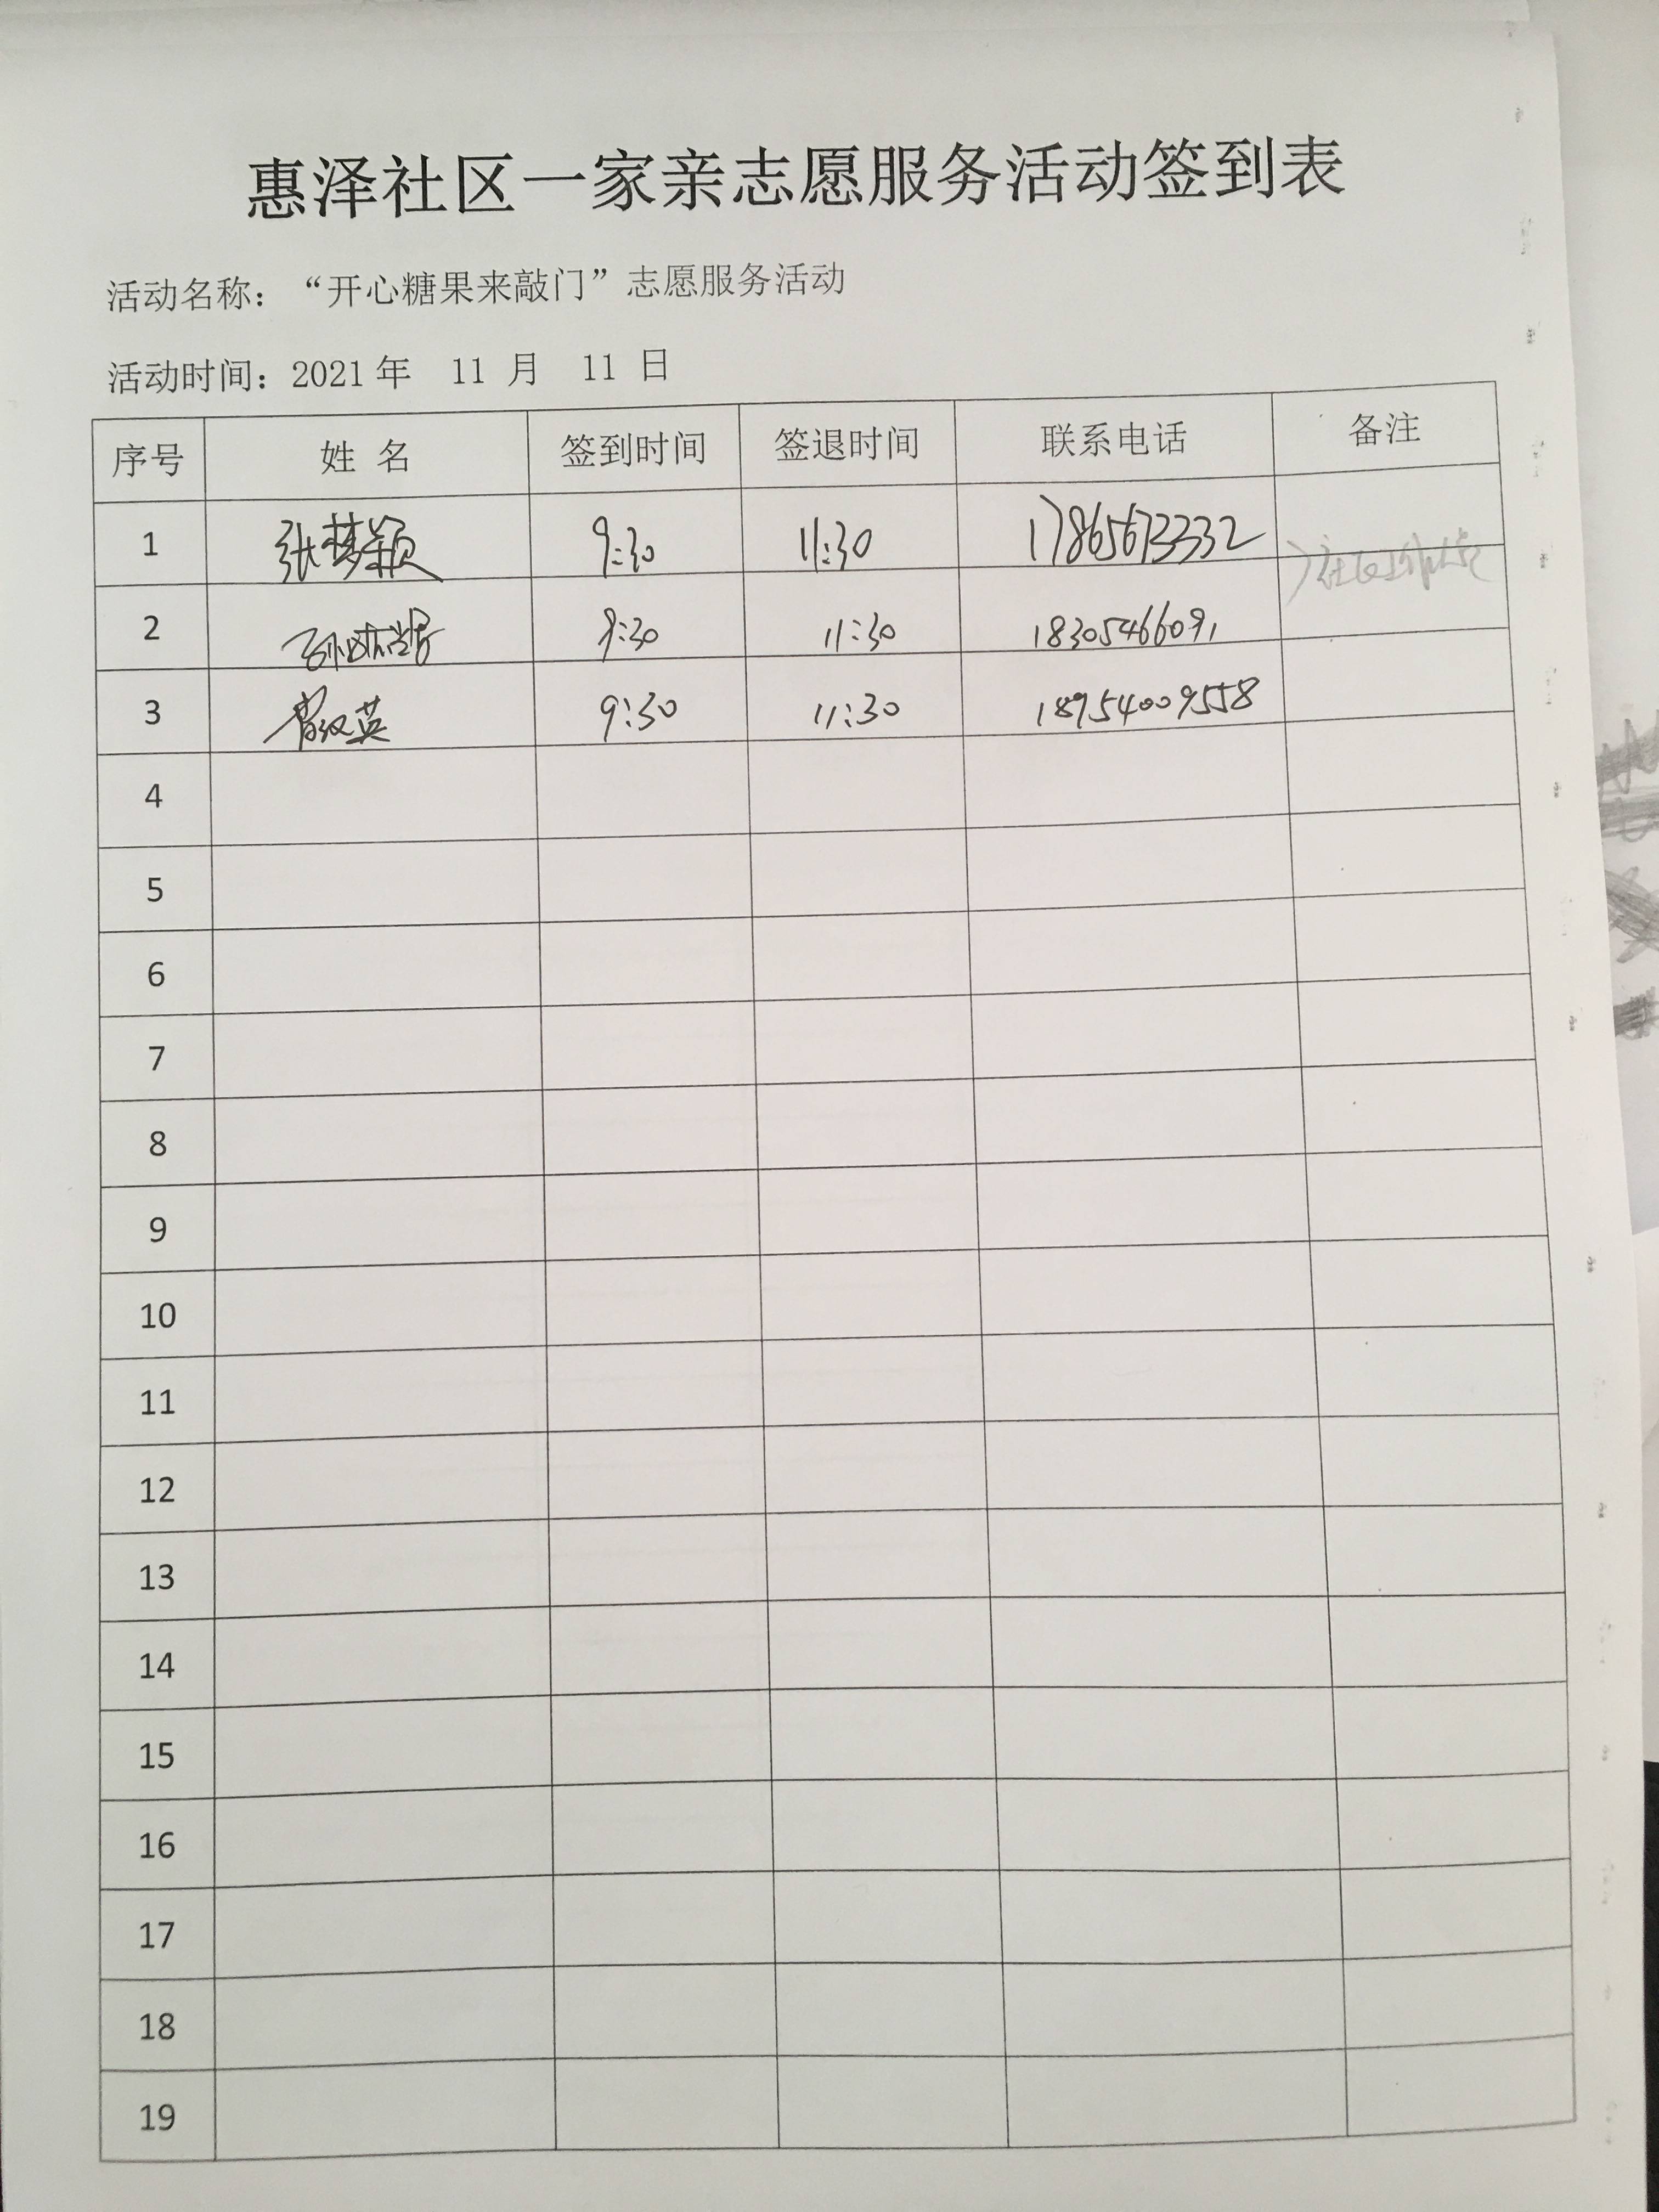 惠泽社区一家亲志愿服务活动签到表
活动名称：“开心糖果来敲门”志愿服务活动
活动时间：2021年 11 月 11 日
序号 姓 名 签到时间 签退时间 联系电话 备注
1 张梦颖 9:30 11:30 17865673332
2 9:30 11:30 18305466091
3 9:30 11:30 18954009558
4
5
6
7
8
9
10
11
12
13
14
15
16
17
18
19